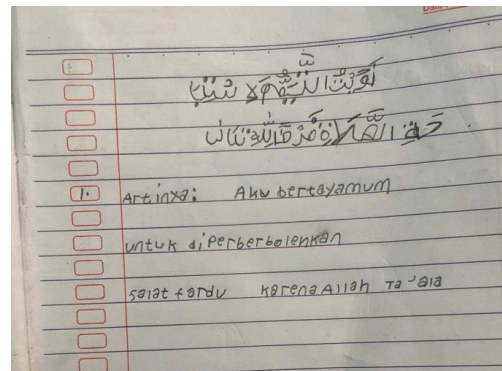 نَوَيْتُ التَّيَمُّمَ لِاسْتِبَا
حَةِ الصَّلَاةِ فَرْضً لِلّٰهِ تَعَالٰى
1. Artinya: Aku bertayamum
untuk diperberbolehkan
salat fardu karena Allah Ta'ala